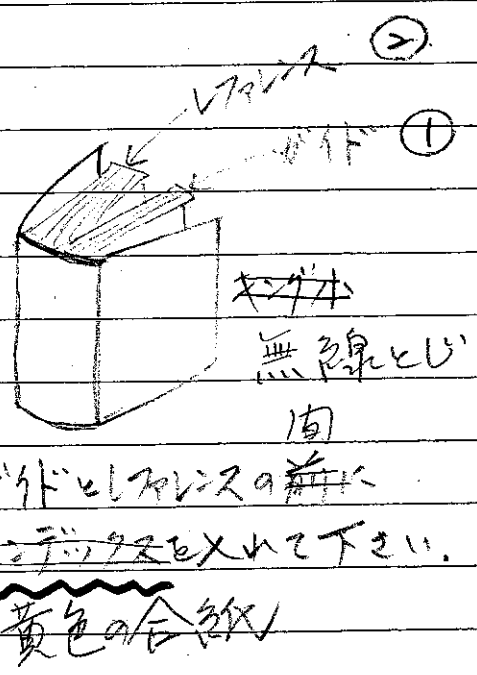 レファレンス ②
ガイド ①
キングホ
無線とじ
間
ガイドとレファレンスの前に
ンデックスを入れて下さい.
黄色の合紙